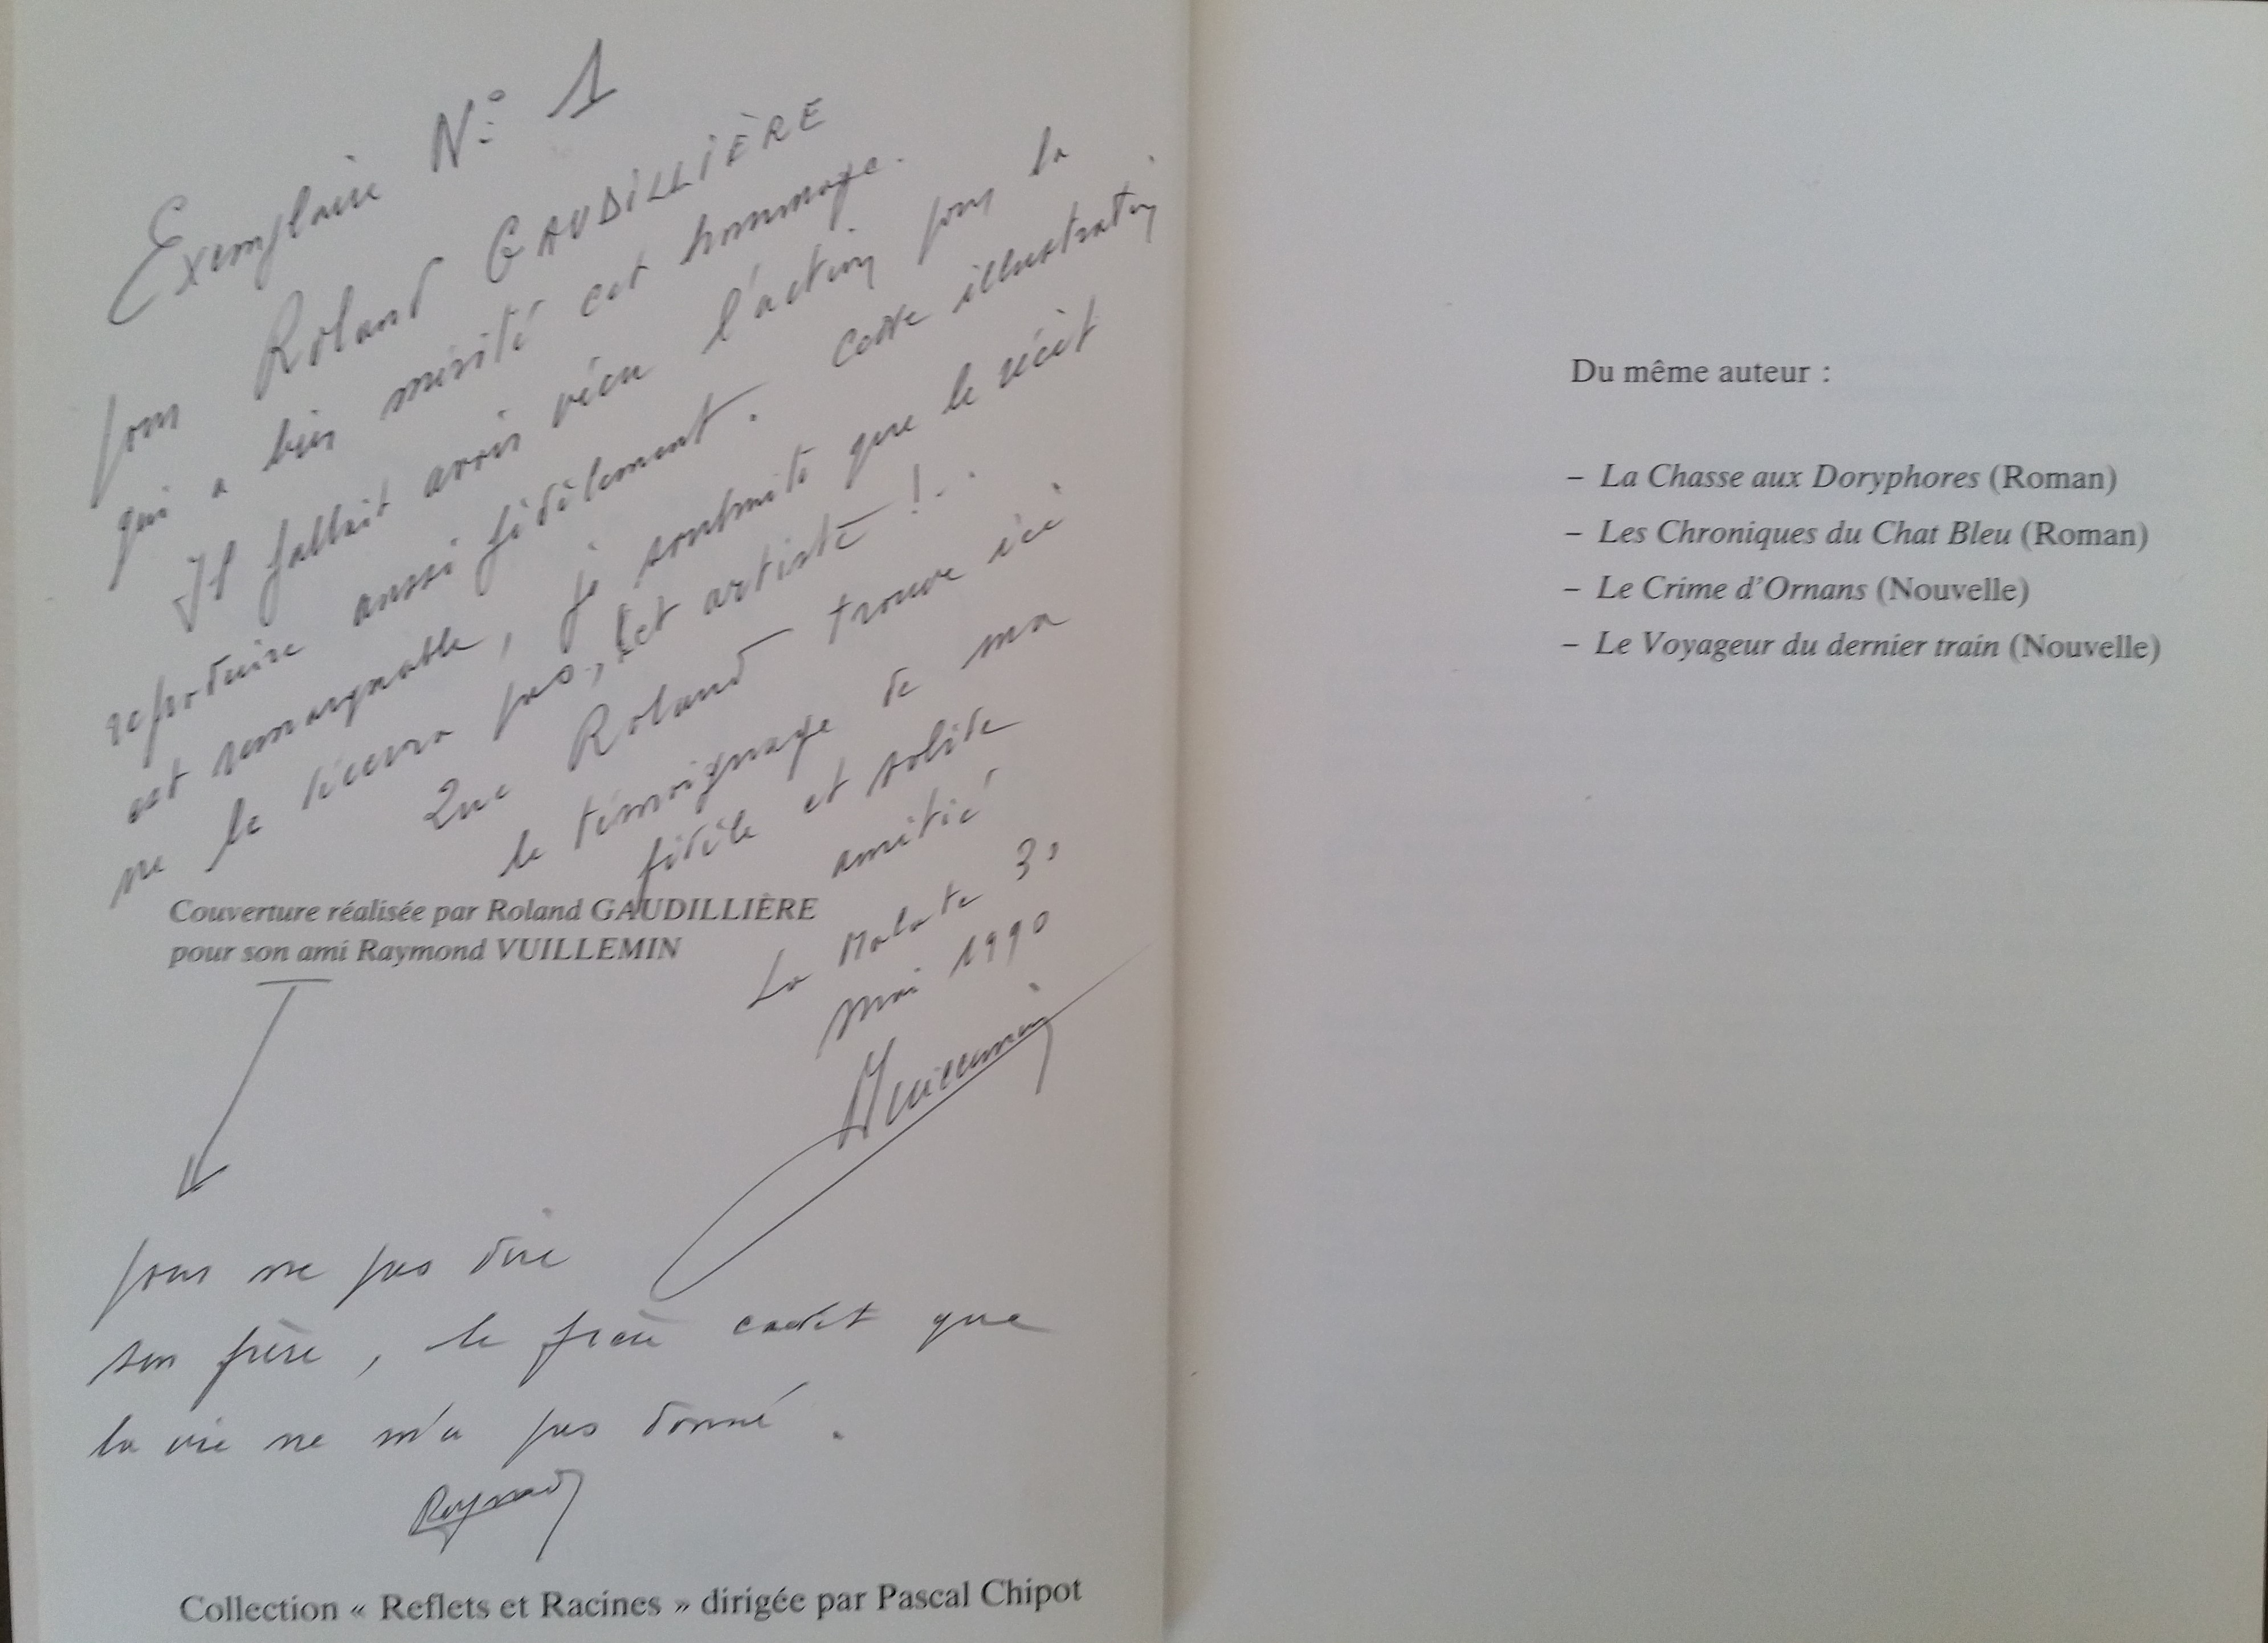 Exemplaire N° 1
pour Roland GAUDILLIÈRE
qui a bien mérité cet hommage.
Il fallait avoir vécu l'action pour la
reproduire aussi fidèlement. Cette illustration
est remarquable, je souhaite que le récit
ne le décevra pas, cet artiste !..
Que Roland trouve ici
le témoignage de ma
fidèle et solide
amitié
Couverture réalisée par Roland GAUDILLIÈRE
pour son ami Raymond VUILLEMIN
La Malate
mai 1990
Vuillemin
pour ne pas dire
son frère, le frère cadet que
la vie ne m'a pas donné.
Raymond
Collection « Reflets et Racines » dirigée par Pascal Chipot
Du même auteur :
– La Chasse aux Doryphores (Roman)
– Les Chroniques du Chat Bleu (Roman)
– Le Crime d'Ornans (Nouvelle)
– Le Voyageur du dernier train (Nouvelle)